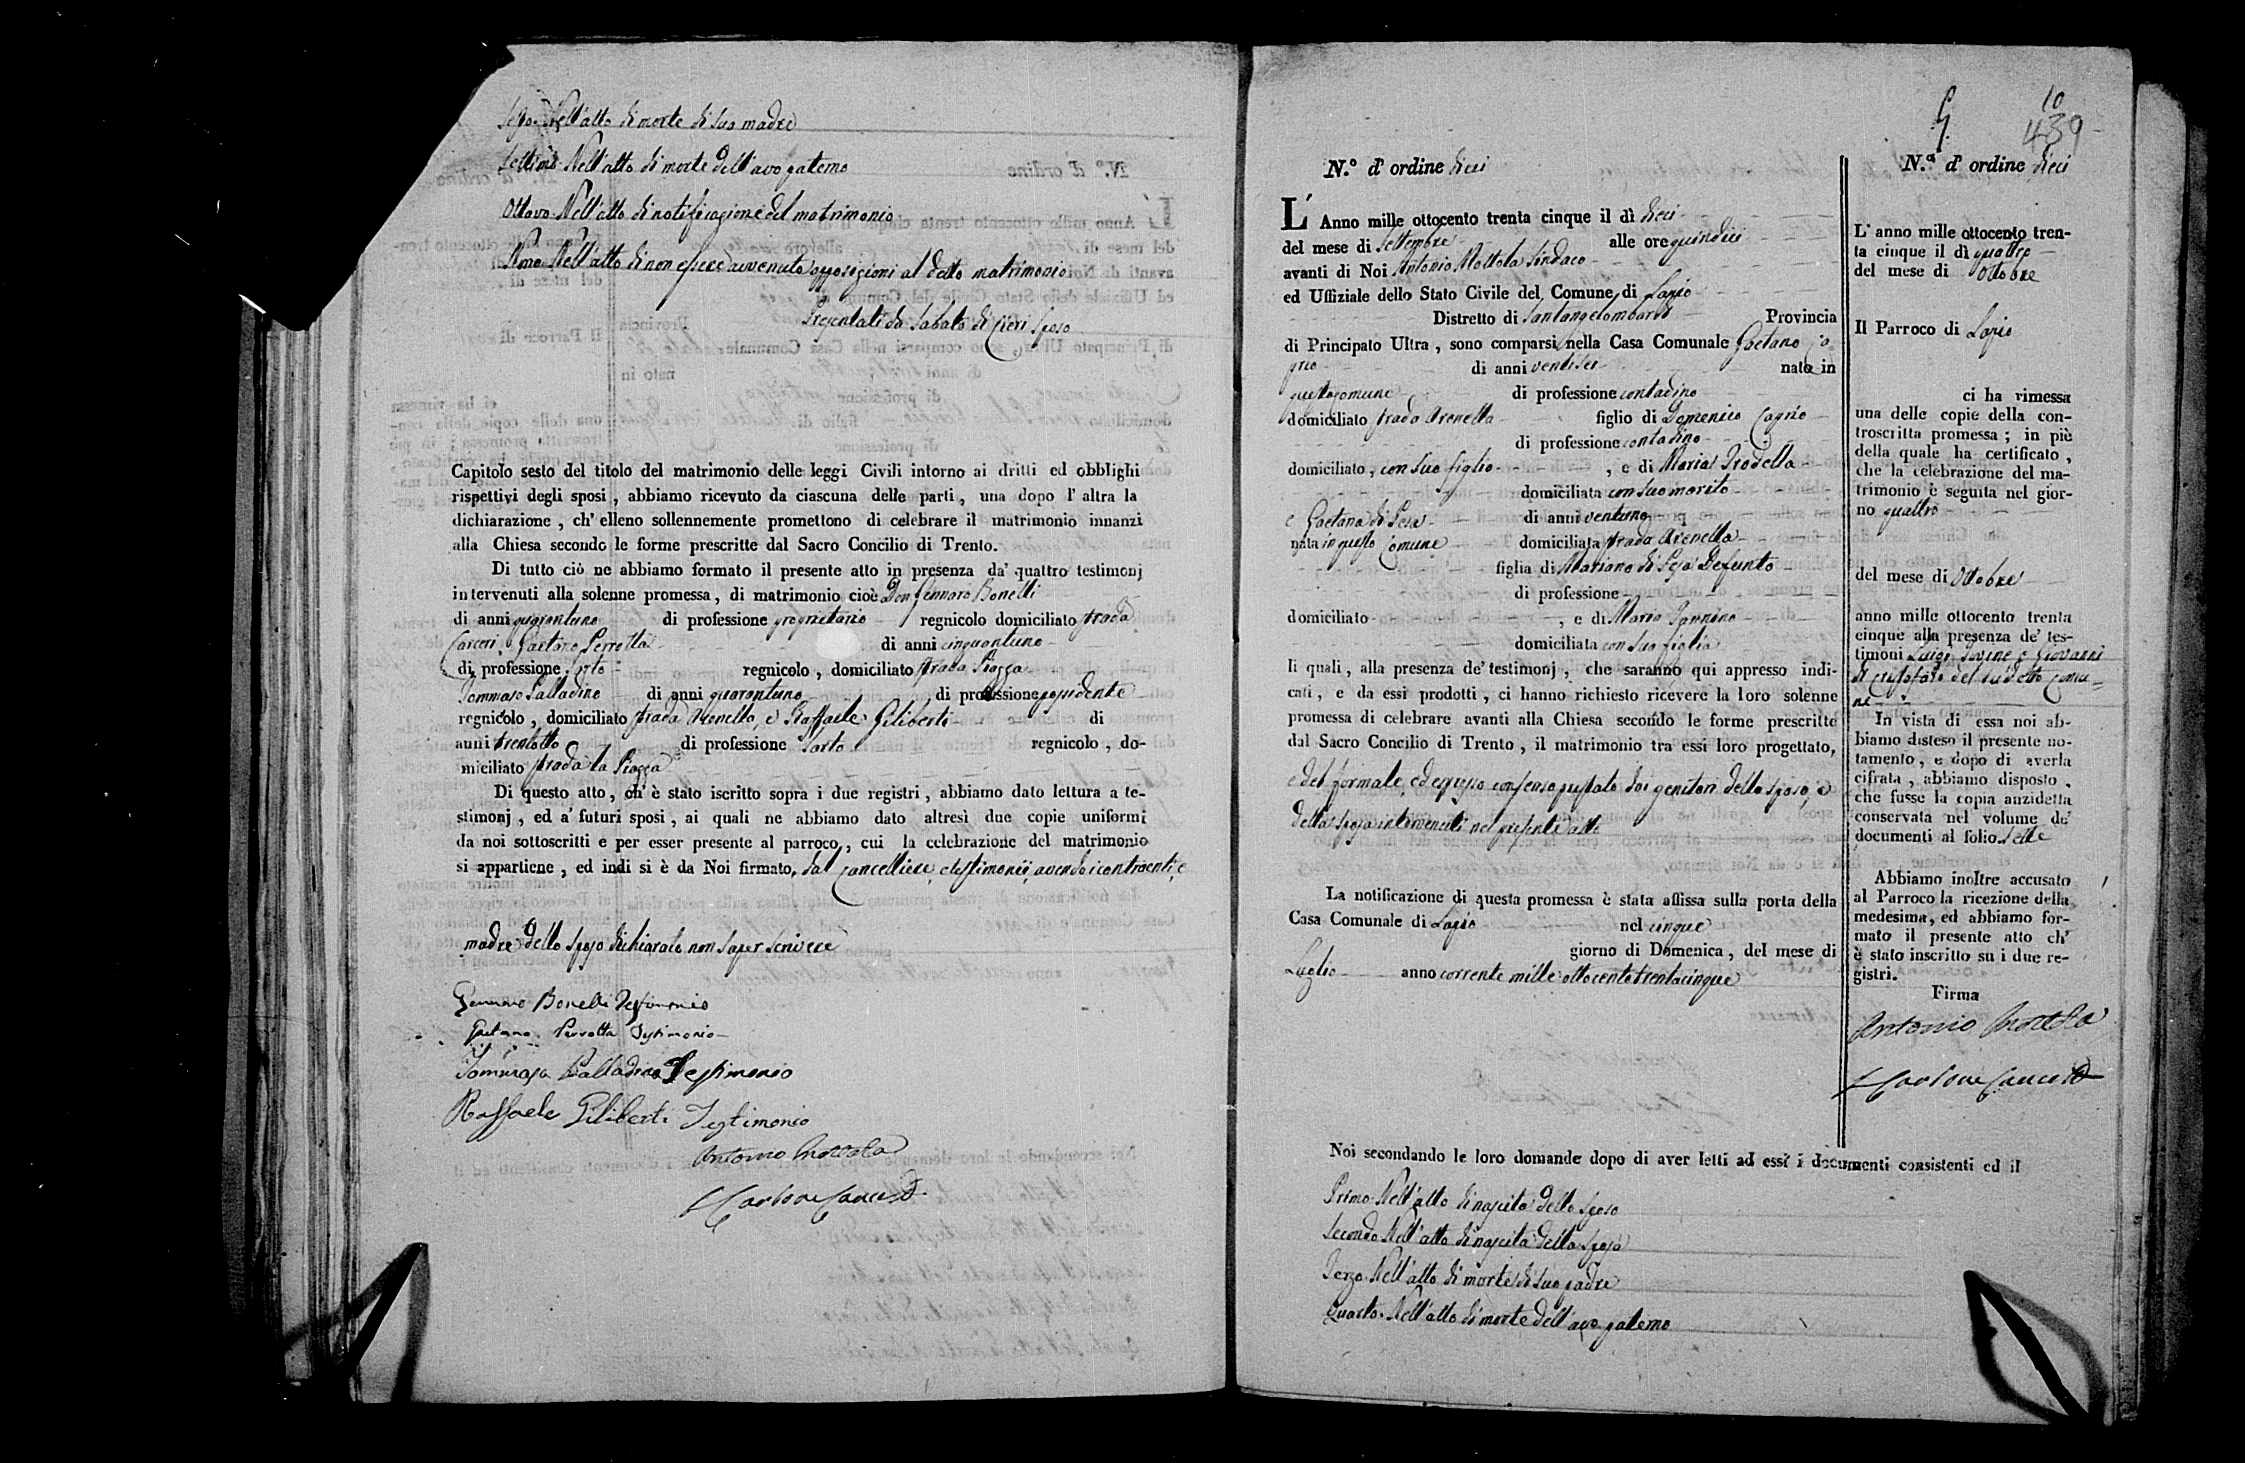 Sesto Nell'atto di morte di sua madre
Settimo Nell'atto di morte dell'avo paterno
Ottavo Nell'atto di notificazione del matrimonio
Nono Nell'atto di non essere avvenute opposizioni al detto matrimonio
Presentati da Sabato di Pieri Sposo
Capitolo sesto del titolo del matrimonio delle leggi Civili intorno ai dritti ed obblighi
rispettivi degli sposi, abbiamo ricevuto da ciascuna delle parti, una dopo l'altra la
dichiarazione, ch'elleno sollennemente promettono di celebrare il matrimonio innanzi
alla Chiesa secondo le forme prescritte dal Sacro Concilio di Trento.
Di tutto ciò ne abbiamo formato il presente atto in presenza da' quattro testimonj
intervenuti alla solenne promessa, di matrimonio cioè Don Gennaro Bonelli
di anni quarantuno di professione proprietario regnicolo domiciliato strada
Carceri, Gaetano Perrotta di anni cinquantuno
di professione sarto regnicolo, domiciliato strada Piazza
Tommaso Palladino di anni quarantuno di professione possidente
regnicolo, domiciliato strada Arenella, e Raffaele Giliberti di
anni trentotto di professione sarto regnicolo, do-
miciliato strada la Piazza
Di questo atto, ch'è stato iscritto sopra i due registri, abbiamo dato lettura a te-
stimonj, ed a' futuri sposi, ai quali ne abbiamo dato altresì due copie uniformi
da noi sottoscritti e per esser presente al parroco, cui la celebrazione del matrimonio
si appartiene, ed indi si è da Noi firmato, dal Cancelliere, e testimonii, avendo i contraenti, e
madre dello sposo dichiarato non saper scrivere
Gennaro Bonelli Testimonio
Gaetano Perrotta Testimonio
Tommaso Palladino Testimonio
Raffaele Giliberti Testimonio
Antonio Mottola
Carbone Cancell.
10
439
N.° d'ordine dieci
L'Anno mille ottocento trenta cinque il dì dieci
del mese di Settembre alle ore quindici
avanti di Noi Antonio Mottola Sindaco
ed Uffiziale dello Stato Civile del Comune di Lapio
Distretto di Santangelombardi Provincia
di Principato Ultra, sono comparsi nella Casa Comunale Gaetano Ca
prio di anni ventisei nato in
questo comune di professione contadino
domiciliato strada Arenella figlio di Domenico Caprio
di professione contadino
domiciliato, con suo figlio, e di Maria Trodella
domiciliata con suo marito
e Gaetana di Pesa di anni ventuno
nata in questo Comune domiciliata strada Arenella
figlia di Mariano di Pesa Defunto
di professione
domiciliato, e di Maria Iannino
domiciliata con sua figlia
li quali, alla presenza de' testimonj, che saranno qui appresso indi-
cati, e da essi prodotti, ci hanno richiesto ricevere la loro solenne
promessa di celebrare avanti alla Chiesa secondo le forme prescritte
dal Sacro Concilio di Trento, il matrimonio tra essi loro progettato,
e del formale, ed espresso consenso prestato dai genitori dello sposo, e
della sposa intervenuti nel presente atto
La notificazione di questa promessa è stata affissa sulla porta della
Casa Comunale di Lapio nel cinque
giorno di Domenica, del mese di
Luglio anno corrente mille ottocento trentacinque
N.° d'ordine dieci
L'anno mille ottocento tren-
ta cinque il dì quattro
del mese di Ottobre
Il Parroco di Lapio
ci ha rimessa
una delle copie della con-
troscritta promessa; in piè
della quale ha certificato,
che la celebrazione del ma-
trimonio è seguita nel gior-
no quattro
del mese di Ottobre
anno mille ottocento trenta
cinque alla presenza de' tes-
timoni Luigi Iovine e Giovanni
di Cristofaro del sudetto Comu=
ne
In vista di essa noi ab-
biamo disteso il presente no-
tamento, e dopo di averla
cifrata, abbiamo disposto,
che fusse la copia anzidetta
conservata nel volume de'
documenti al folio sette
Abbiamo inoltre accusato
al Parroco la ricezione della
medesima, ed abbiamo for-
mato il presente atto ch'
è stato inscritto su i due re-
gistri.
Firma
Antonio Mottola
Carbone Cancell.
Noi secondando le loro domande dopo di aver letti ad essi i documenti consistenti ed il
Primo Nell'atto di nascita dello Sposo
Secondo Nell'atto di nascita della Sposa
Terzo Nell'atto di morte di suo padre
Quarto Nell'atto di morte dell'avo paterno